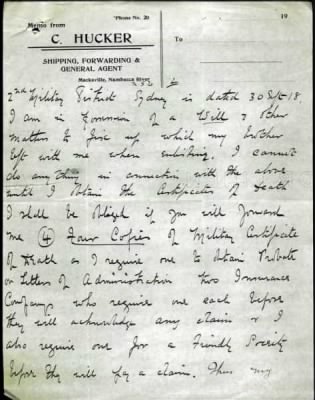 'Phone No. 20
19
Memo from
C. HUCKER
To
SHIPPING, FORWARDING &
GENERAL AGENT
Macksville, Nambucca River
2nd Military District Sydney is dated 30 Sept 18.
I am in possession of a Will & other
matters to fix up which my brother
left with me when enlisting. I cannot
do anything in connection with the above
until I obtain the Certificates of Death
I shall be obliged if you will forward
me (4) Four Copies of Military Certificate
of Death as I require one to obtain Probate
or Letters of Administration two Insurance
Companys who require one each before
they will acknowledge any claim & I
also require one for a Friendly Society
before they will pay a claim. Thus my